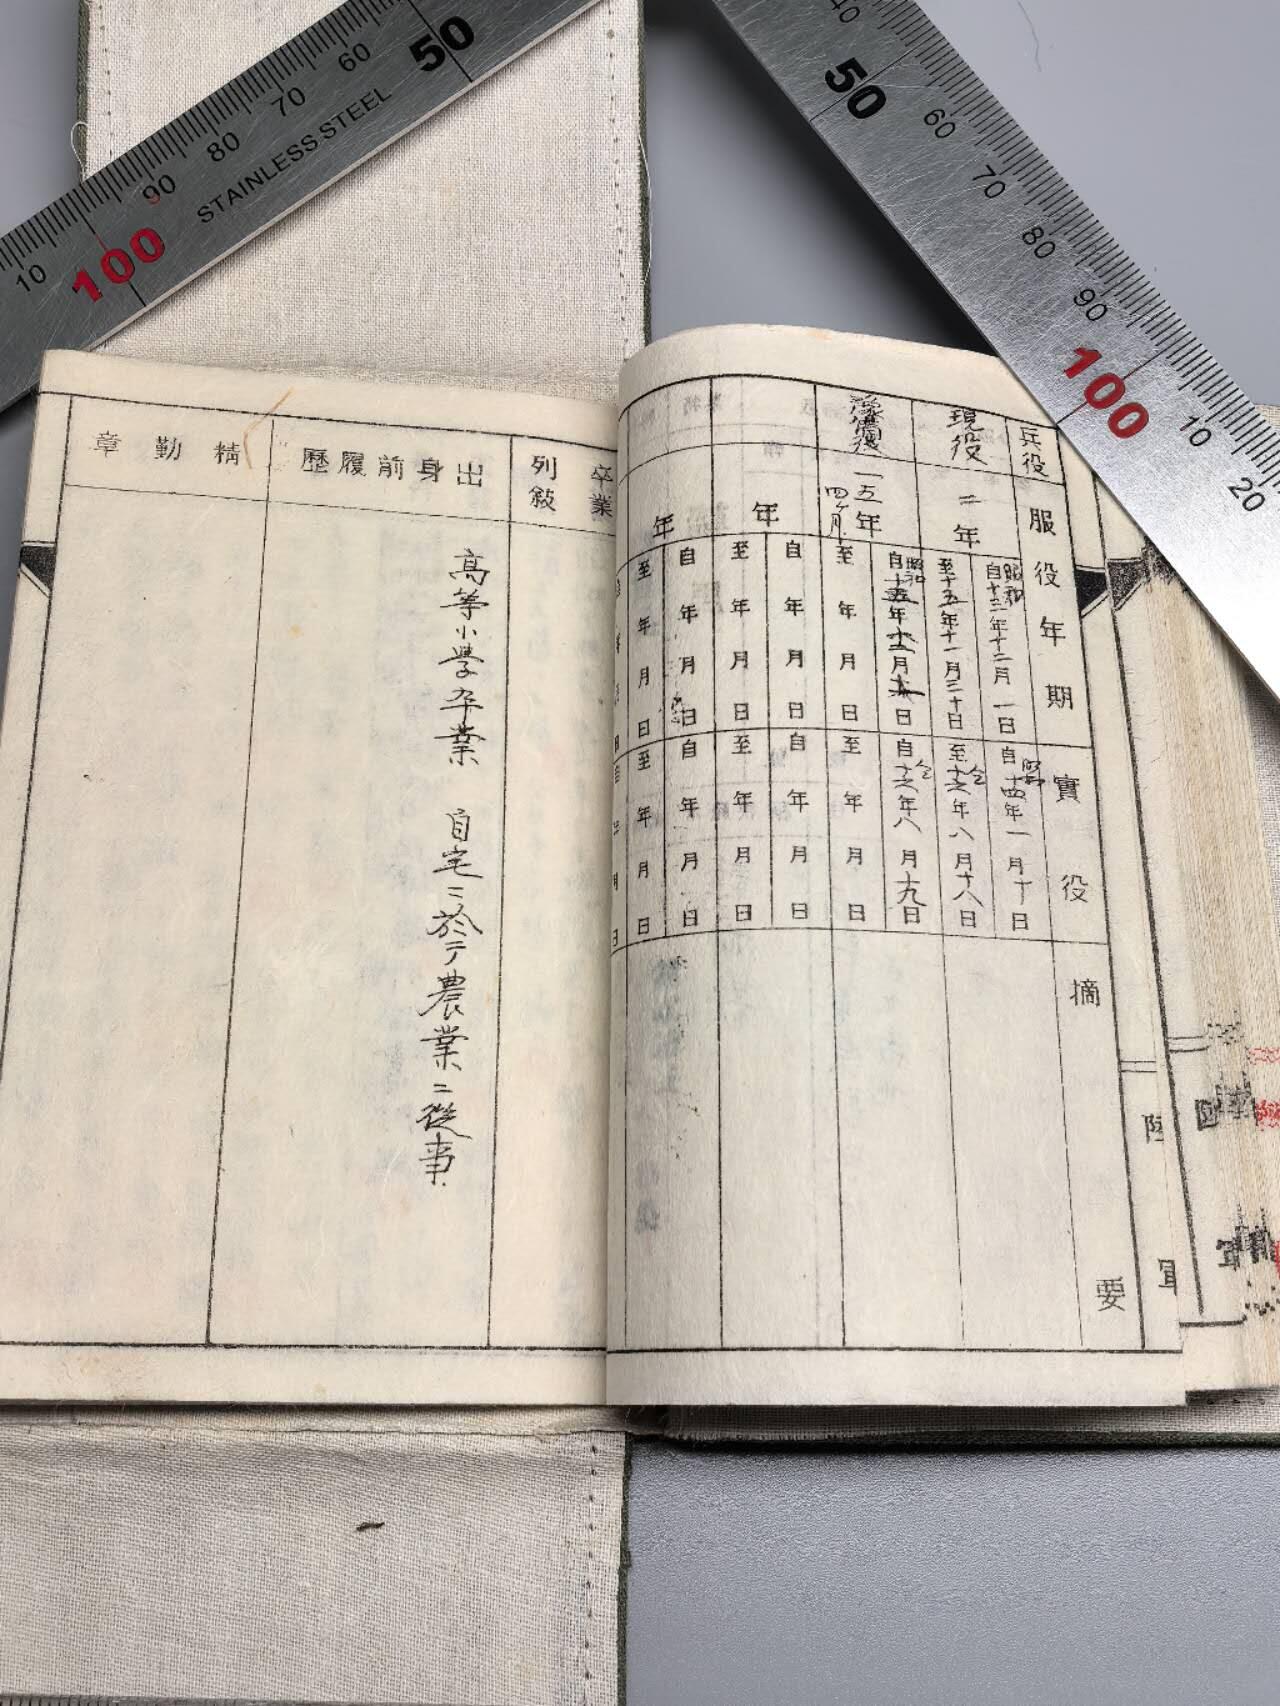 50 60 70 80 90 100 10
STAINLESS STEEL
40 50 60 70 80 90 100 10 20
兵役
服役年期
實役
摘要
現役
二年
自昭和十三年十二月一日
至十五年十一月三十日
自昭和十四年一月十日
至仝十六年八月十八日
一五年四ケ月
自昭和
年
月
日
至 年 月 日
自仝十六年八月十九日
至 年 月 日
年
自 年 月 日
至 年 月 日
自 年 月 日
至 年 月 日
年
自 年 月 日
至 年 月 日
自 年 月 日
至 年 月 日
卒業
列敍
出身前履歴
高等小學卒業 自宅ニ於テ農業ニ從事
精勤章
陸軍